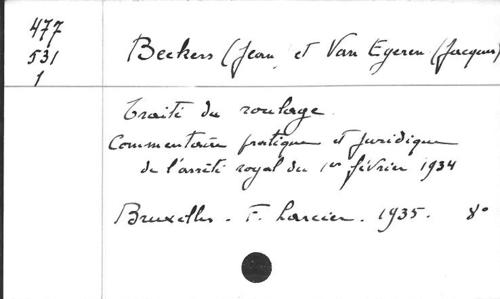 477
531
1
Beckers (Jean, et Van Egeren (Jacques)
Traité du roulage.
Commentaire pratique et juridique
de l'arrêté royal du 1er février 1934
Bruxelles. F. Larcier. 1935. 8°